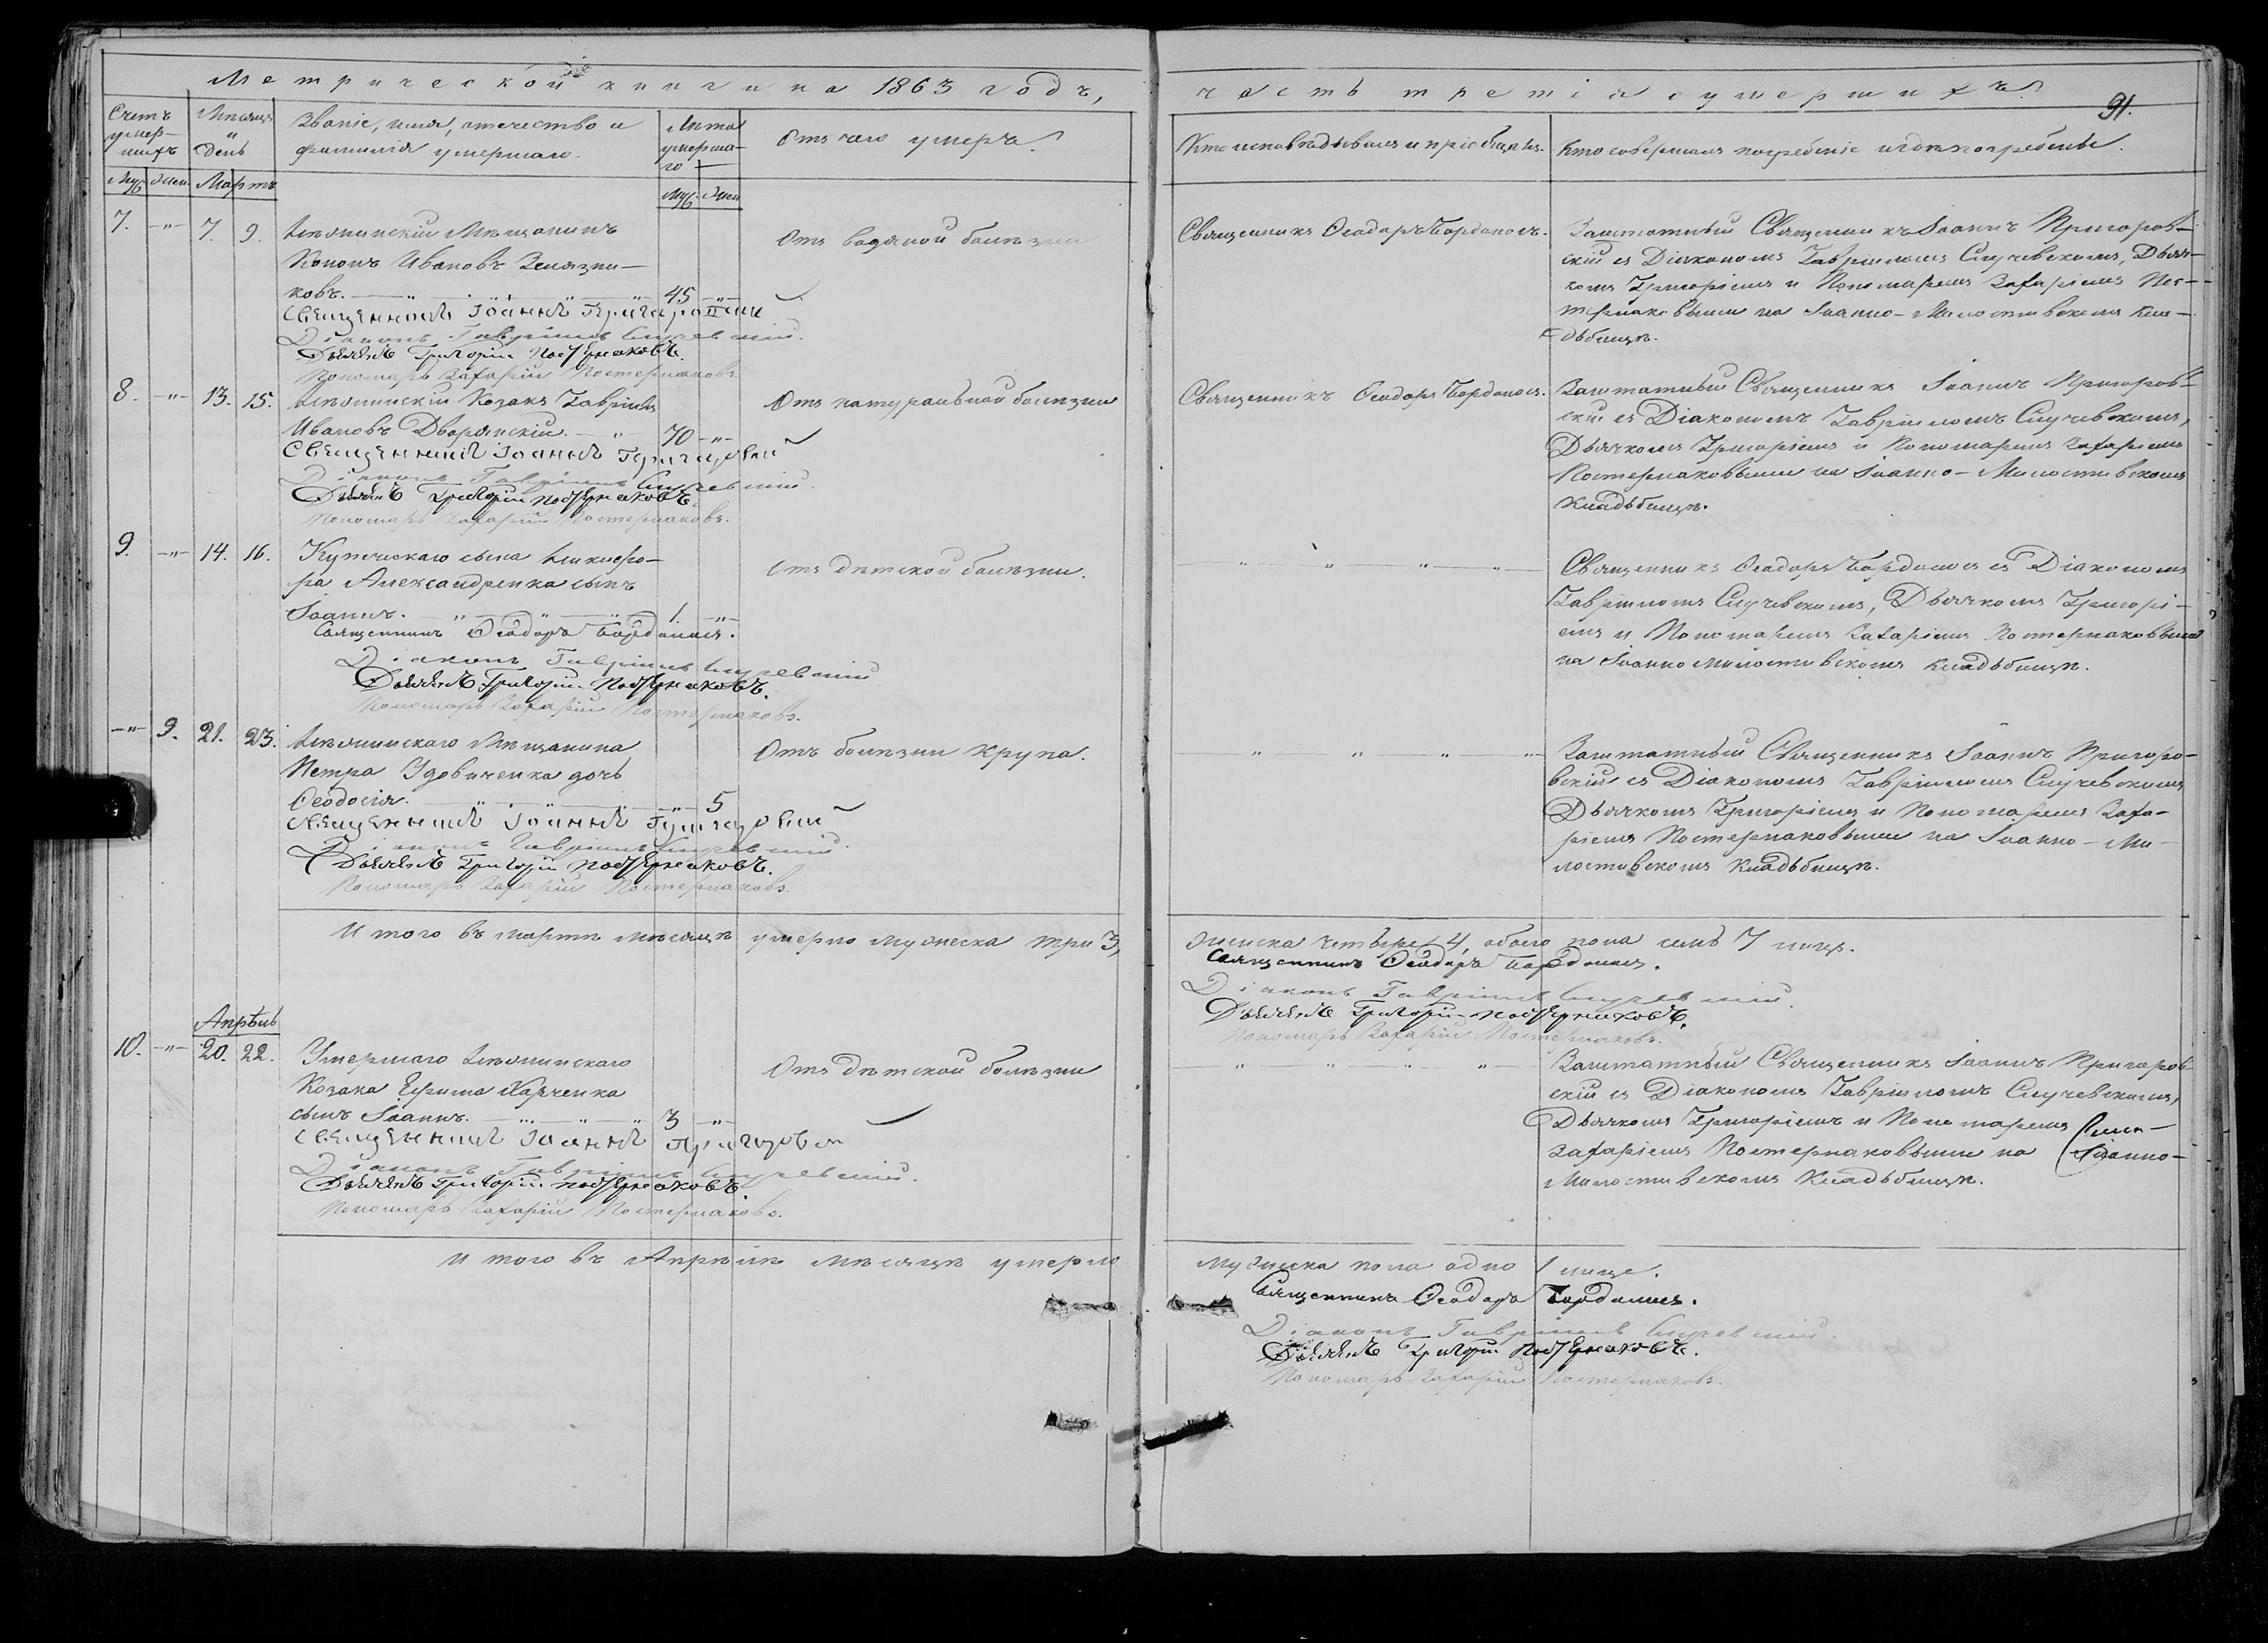 Метрической книги на 1863 годъ,
Счетъ умер-шихъ
Мѣсяцъ и день
Званіе, имя, отечество и фамилія умершаго.
Лѣта умерша-го
Отъ чего умеръ.
Муж. Жен. Мартъ Муж. Жен.
7. -"- 7. 9. Мѣщанинъ
Кононъ Ивановъ
ковъ. 45 -"-
Отъ водяной болѣзни
Священникъ Іоаннъ Пригаровскій
Діаконъ Гавріилъ Случевскій.
Дьячекъ Григорій Постернаковъ.
Пономарь Захарій Постернаковъ.
8. -"- 13. 15. Козакъ Гавріилъ
Ивановъ Дворянскій. 70 -"-
Отъ натуральной болѣзни
Священникъ Іоаннъ Пригаровскій
Діаконъ Гавріилъ Случевскій.
Дьячекъ Григорій Постернаковъ.
Пономарь Захарій Постернаковъ.
9. -"- 14. 16. Купеческаго сына Никифо-
ра Александренка сынъ
Іоаннъ. 1. -"-
Отъ дѣтской болѣзни.
Священникъ Ѳеодоръ Бордоносъ.
Діаконъ Гавріилъ Случевскій
Дьячекъ Григорій Постернаковъ.
Пономарь Захарій Постернаковъ.
-"- 9. 21. 23. Мѣщанина
Петра Удовиченка дочь
Ѳеодосія. -"- 5
Отъ болѣзни крупа.
Священникъ Іоаннъ Пригаровскій
Діаконъ Гавріилъ Случевскій.
Дьячекъ Григорій Постернаковъ.
Пономарь Захарій Постернаковъ.
Итого въ мартѣ мѣсяцѣ умерло мужеска три 3,
Апрѣль
10. -"- 20. 22. Умершаго
Козака Ефима Харченка
сынъ Іоаннъ. 3 -"-
Отъ дѣтской болѣзни
Священникъ Іоаннъ Пригаровскій
Діаконъ Гавріилъ Случевскій.
Дьячекъ Григорій Постернаковъ.
Пономарь Захарій Постернаковъ.
Итого въ Апрѣлѣ мѣсяцѣ умерло
часть третія о умершихъ.
91.
Кто исповѣдывалъ и пріобщалъ.
Кто совершалъ погребеніе и гдѣ погребены.
Священникъ Ѳеодоръ Бордоносъ.
Заштатный Священникъ Іоаннъ Пригоров-
скій съ Діакономъ Гавріиломъ Случевскимъ, Дьяч-
комъ Григоріемъ и Пономаремъ Захаріемъ Пос-
тернаковыми на Іоанно-Милостивскомъ Кла-
дьбищѣ.
Священникъ Ѳеодоръ Бордоносъ.
Заштатный Священникъ Іоаннъ Пригоров-
скій съ Діакономъ Гавріиломъ Случевскимъ,
Дьячкомъ Григоріемъ и Пономаремъ Захаріемъ
Постернаковыми на Іоанно-Милостивскомъ
Кладьбищѣ.
Священникъ Ѳеодоръ Бордоносъ съ Діакономъ
Гавріиломъ Случевскимъ, Дьячкомъ Григорі-
емъ и Пономаремъ Захаріемъ Постернаковыми
на Іоанно Милостивскомъ Кладьбищѣ.
Заштатный Священникъ Іоаннъ Пригоро-
вскій съ Діакономъ Гавріиломъ Случевскимъ
Дьячкомъ Григоріемъ и Пономаремъ Заха-
ріемъ Постернаковыми на Іоанно-Ми-
лостивскомъ Кладьбищѣ.
женска четыре 4, обоего пола семь 7 лицъ.
Священникъ Ѳеодоръ Бордоносъ.
Діаконъ Гавріилъ Случевскій.
Дьячекъ Григорій Постернаковъ.
Пономарь Захарій Постернаковъ.
Заштатный Священникъ Іоаннъ Пригаров-
скій съ Діакономъ Гавріиломъ Случевскимъ,
Дьячкомъ Григоріемъ и Пономаремъ
Захаріемъ Постернаковыми на Іоанно-
Милостивскомъ Кладьбищѣ.
мужеска пола одно 1 лице.
Священникъ Ѳеодоръ Бордоносъ.
Діаконъ Гавріилъ Случевскій.
Дьячекъ Григорій Постернаковъ.
Пономарь Захарій Постернаковъ.